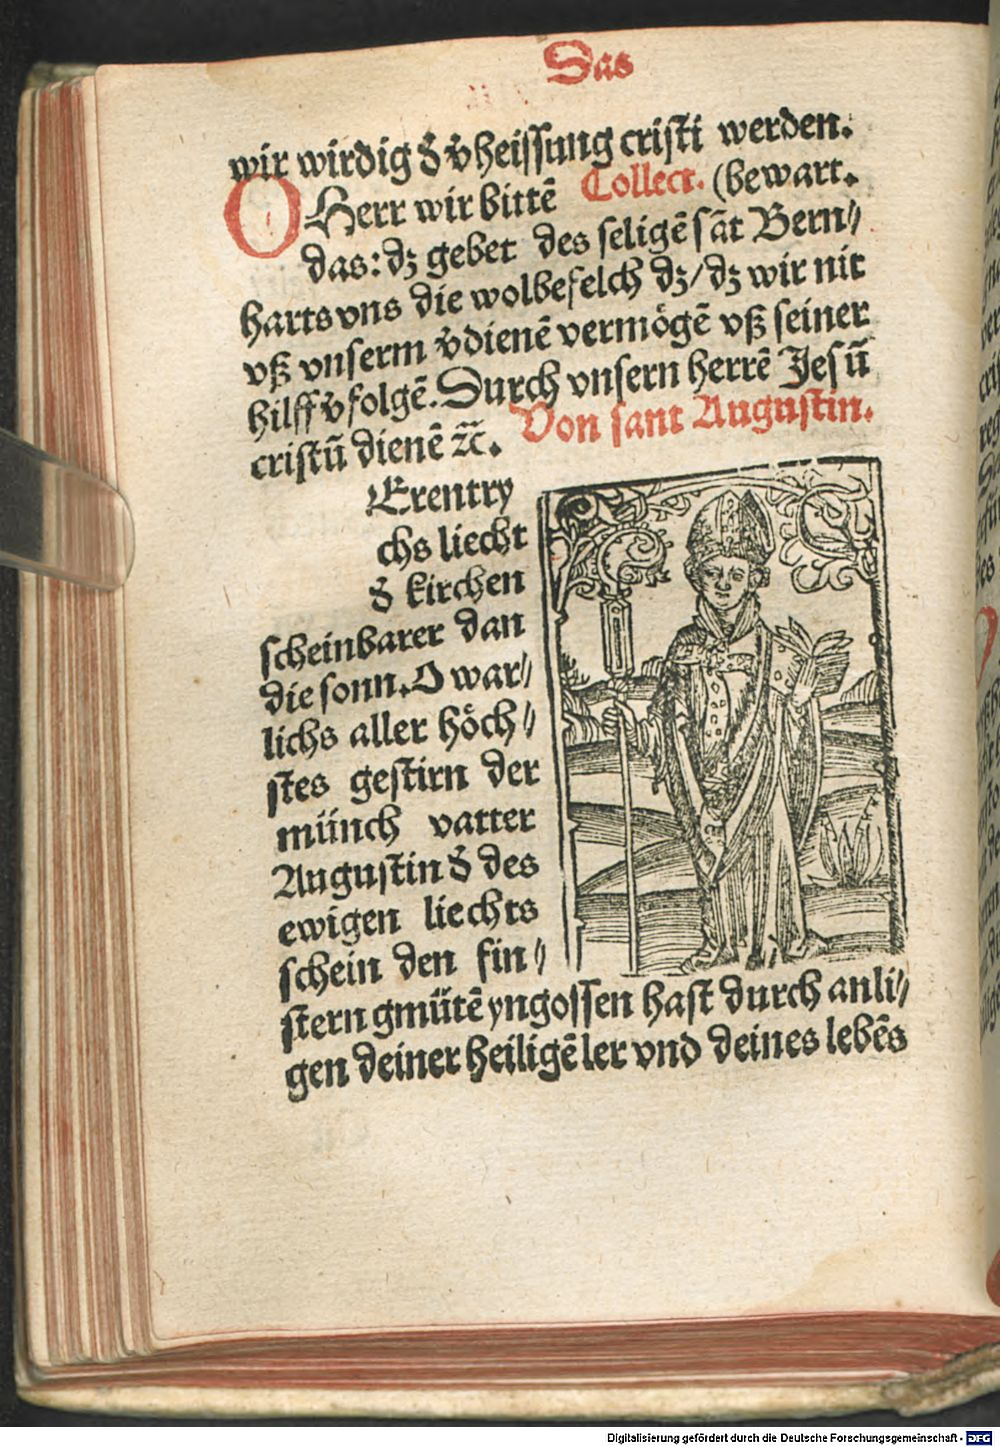 Das
wir wirdig d̕ v̕heissung cristi werden.
O Herr wir bittē Collect. (bewart.
das: dʒ gebet des seligē sāt Bern⸗
harts vns die wolbefelch dʒ/ dʒ wir nit
vß vnserm v̕dienē vermögē vß seiner
hilff v̕folgē. Durch vnsern herrē Jesū
cristū dienē ⁊c̄. Von sant Augustin.
Erentry
chs liecht
d̕ kirchen
scheinbarer dan
die sonn. O war⸗
lichs aller höch⸗
stes gestirn der
münch vatter
Augustin d̕ des
ewigen liechts
schein den fin⸗
stern gmütē yngossen hast durch anli⸗
gen deiner heiligē ler vnd deines lebēs
Digitalisierung gefördert durch die Deutsche Forschungsgemeinschaft - DFG